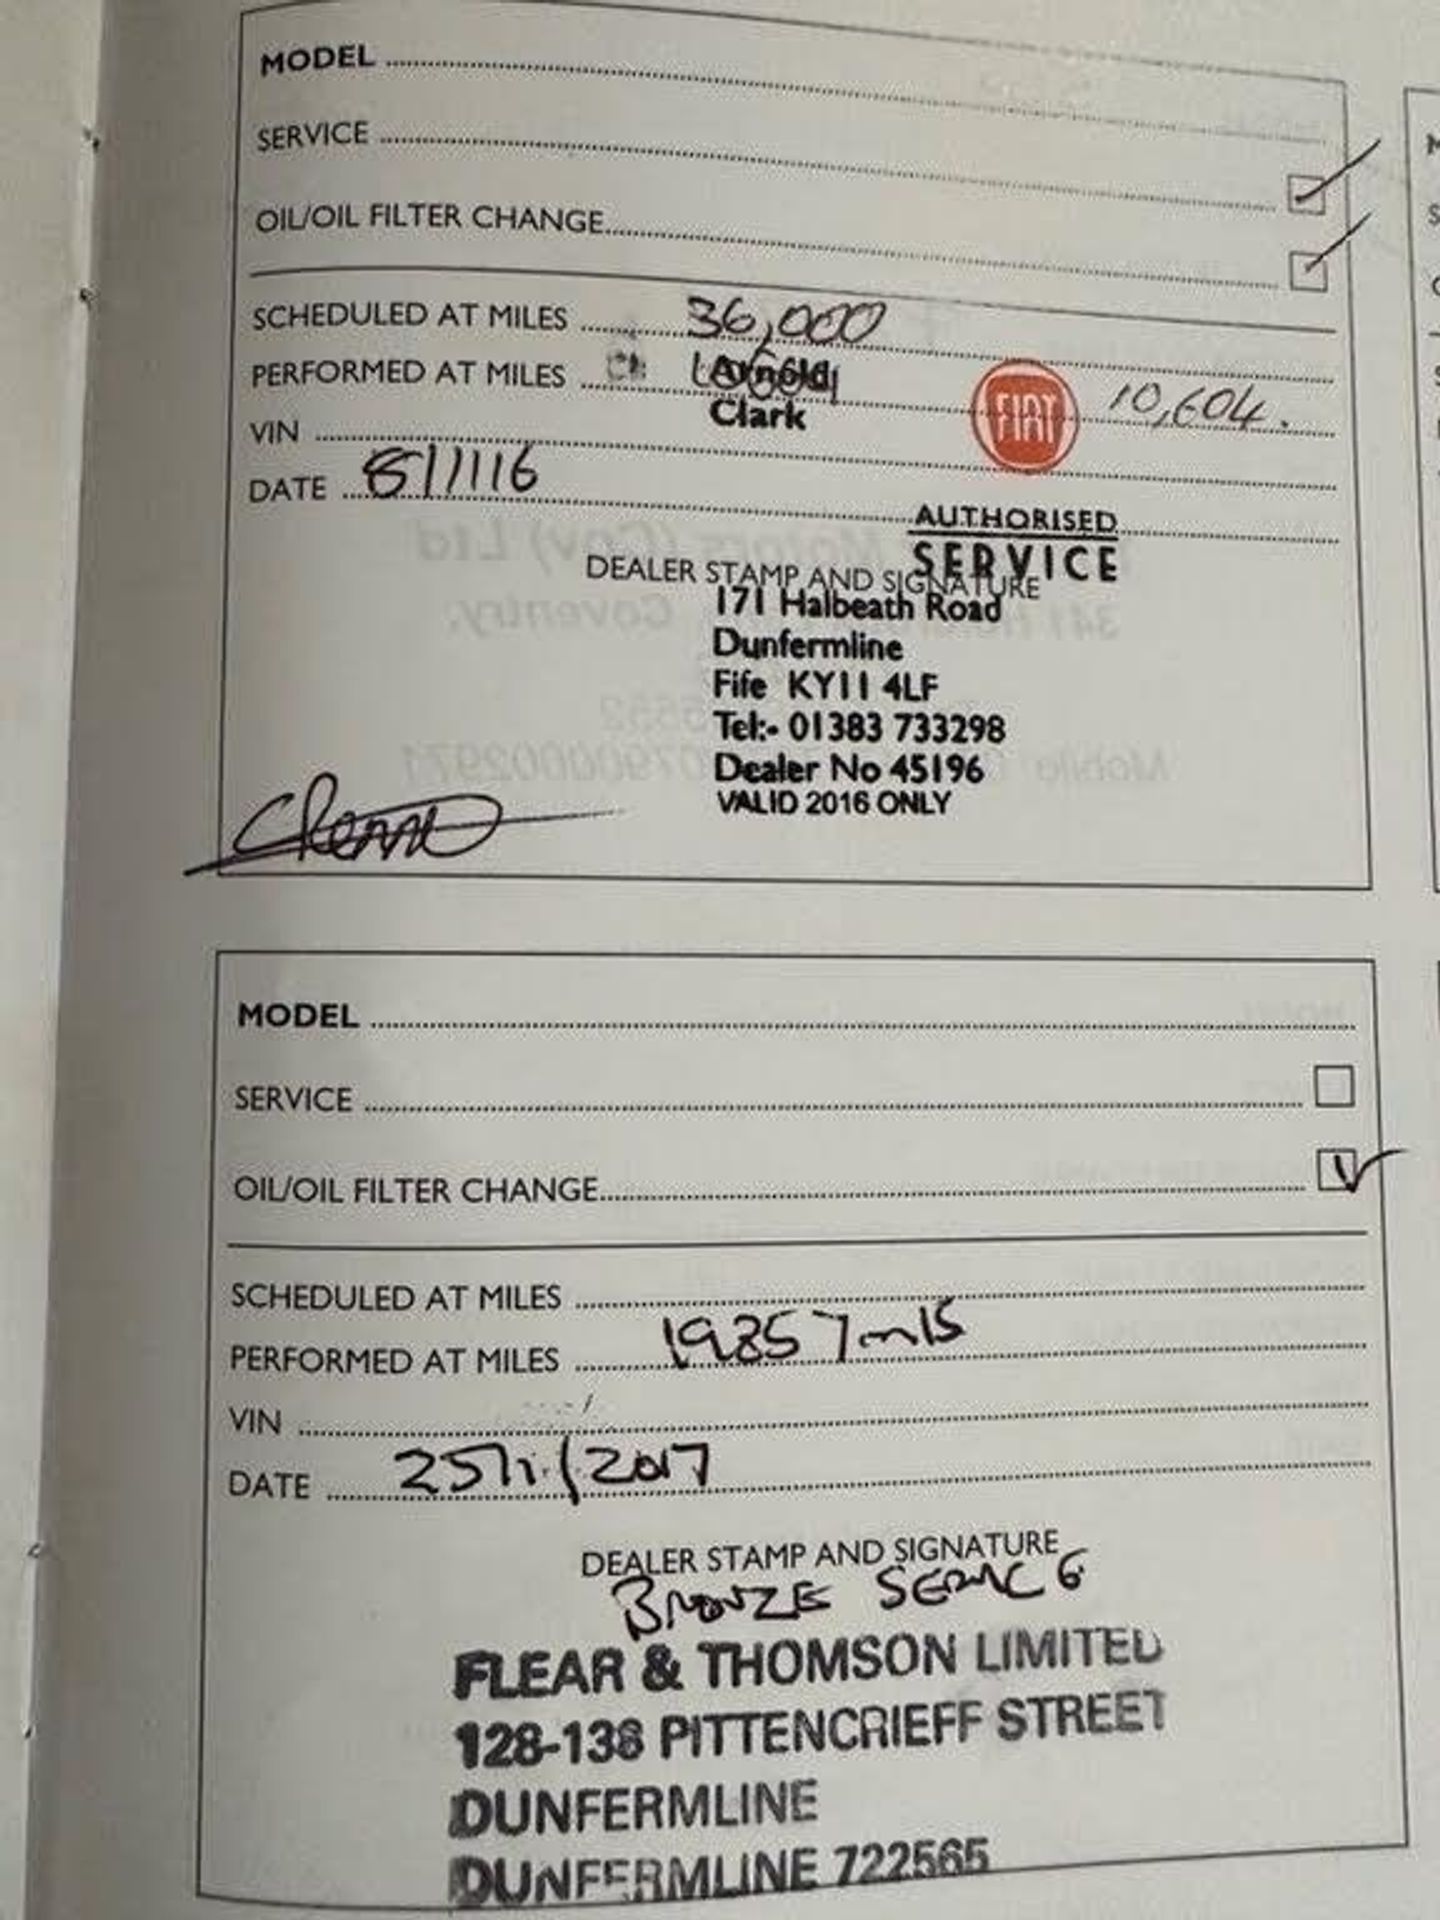 MODEL
SERVICE
OIL/OIL FILTER CHANGE
SCHEDULED AT MILES 36,000
PERFORMED AT MILES Arnold 10,604.
Clark
FIAT
VIN
DATE 8/1/16
AUTHORISED
SERVICE
DEALER STAMP AND SIGNATURE
171 Halbeath Road
Dunfermline
Fife KY11 4LF
Tel:- 01383 733298
Dealer No 45196
VALID 2016 ONLY
MODEL
SERVICE
OIL/OIL FILTER CHANGE
SCHEDULED AT MILES
PERFORMED AT MILES 19857 mls
VIN
DATE 25/1/2017
DEALER STAMP AND SIGNATURE
BRONZE SERVICE
FLEAR & THOMSON LIMITED
128-138 PITTENCRIEFF STREET
DUNFERMLINE
DUNFERMLINE 722565